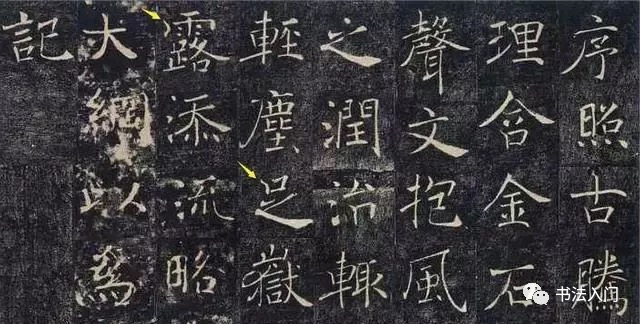 序照古騰
理含金石
聲文抱風
之潤治輒
輕塵足嶽
露添流略
大綱以為
記
书法入门